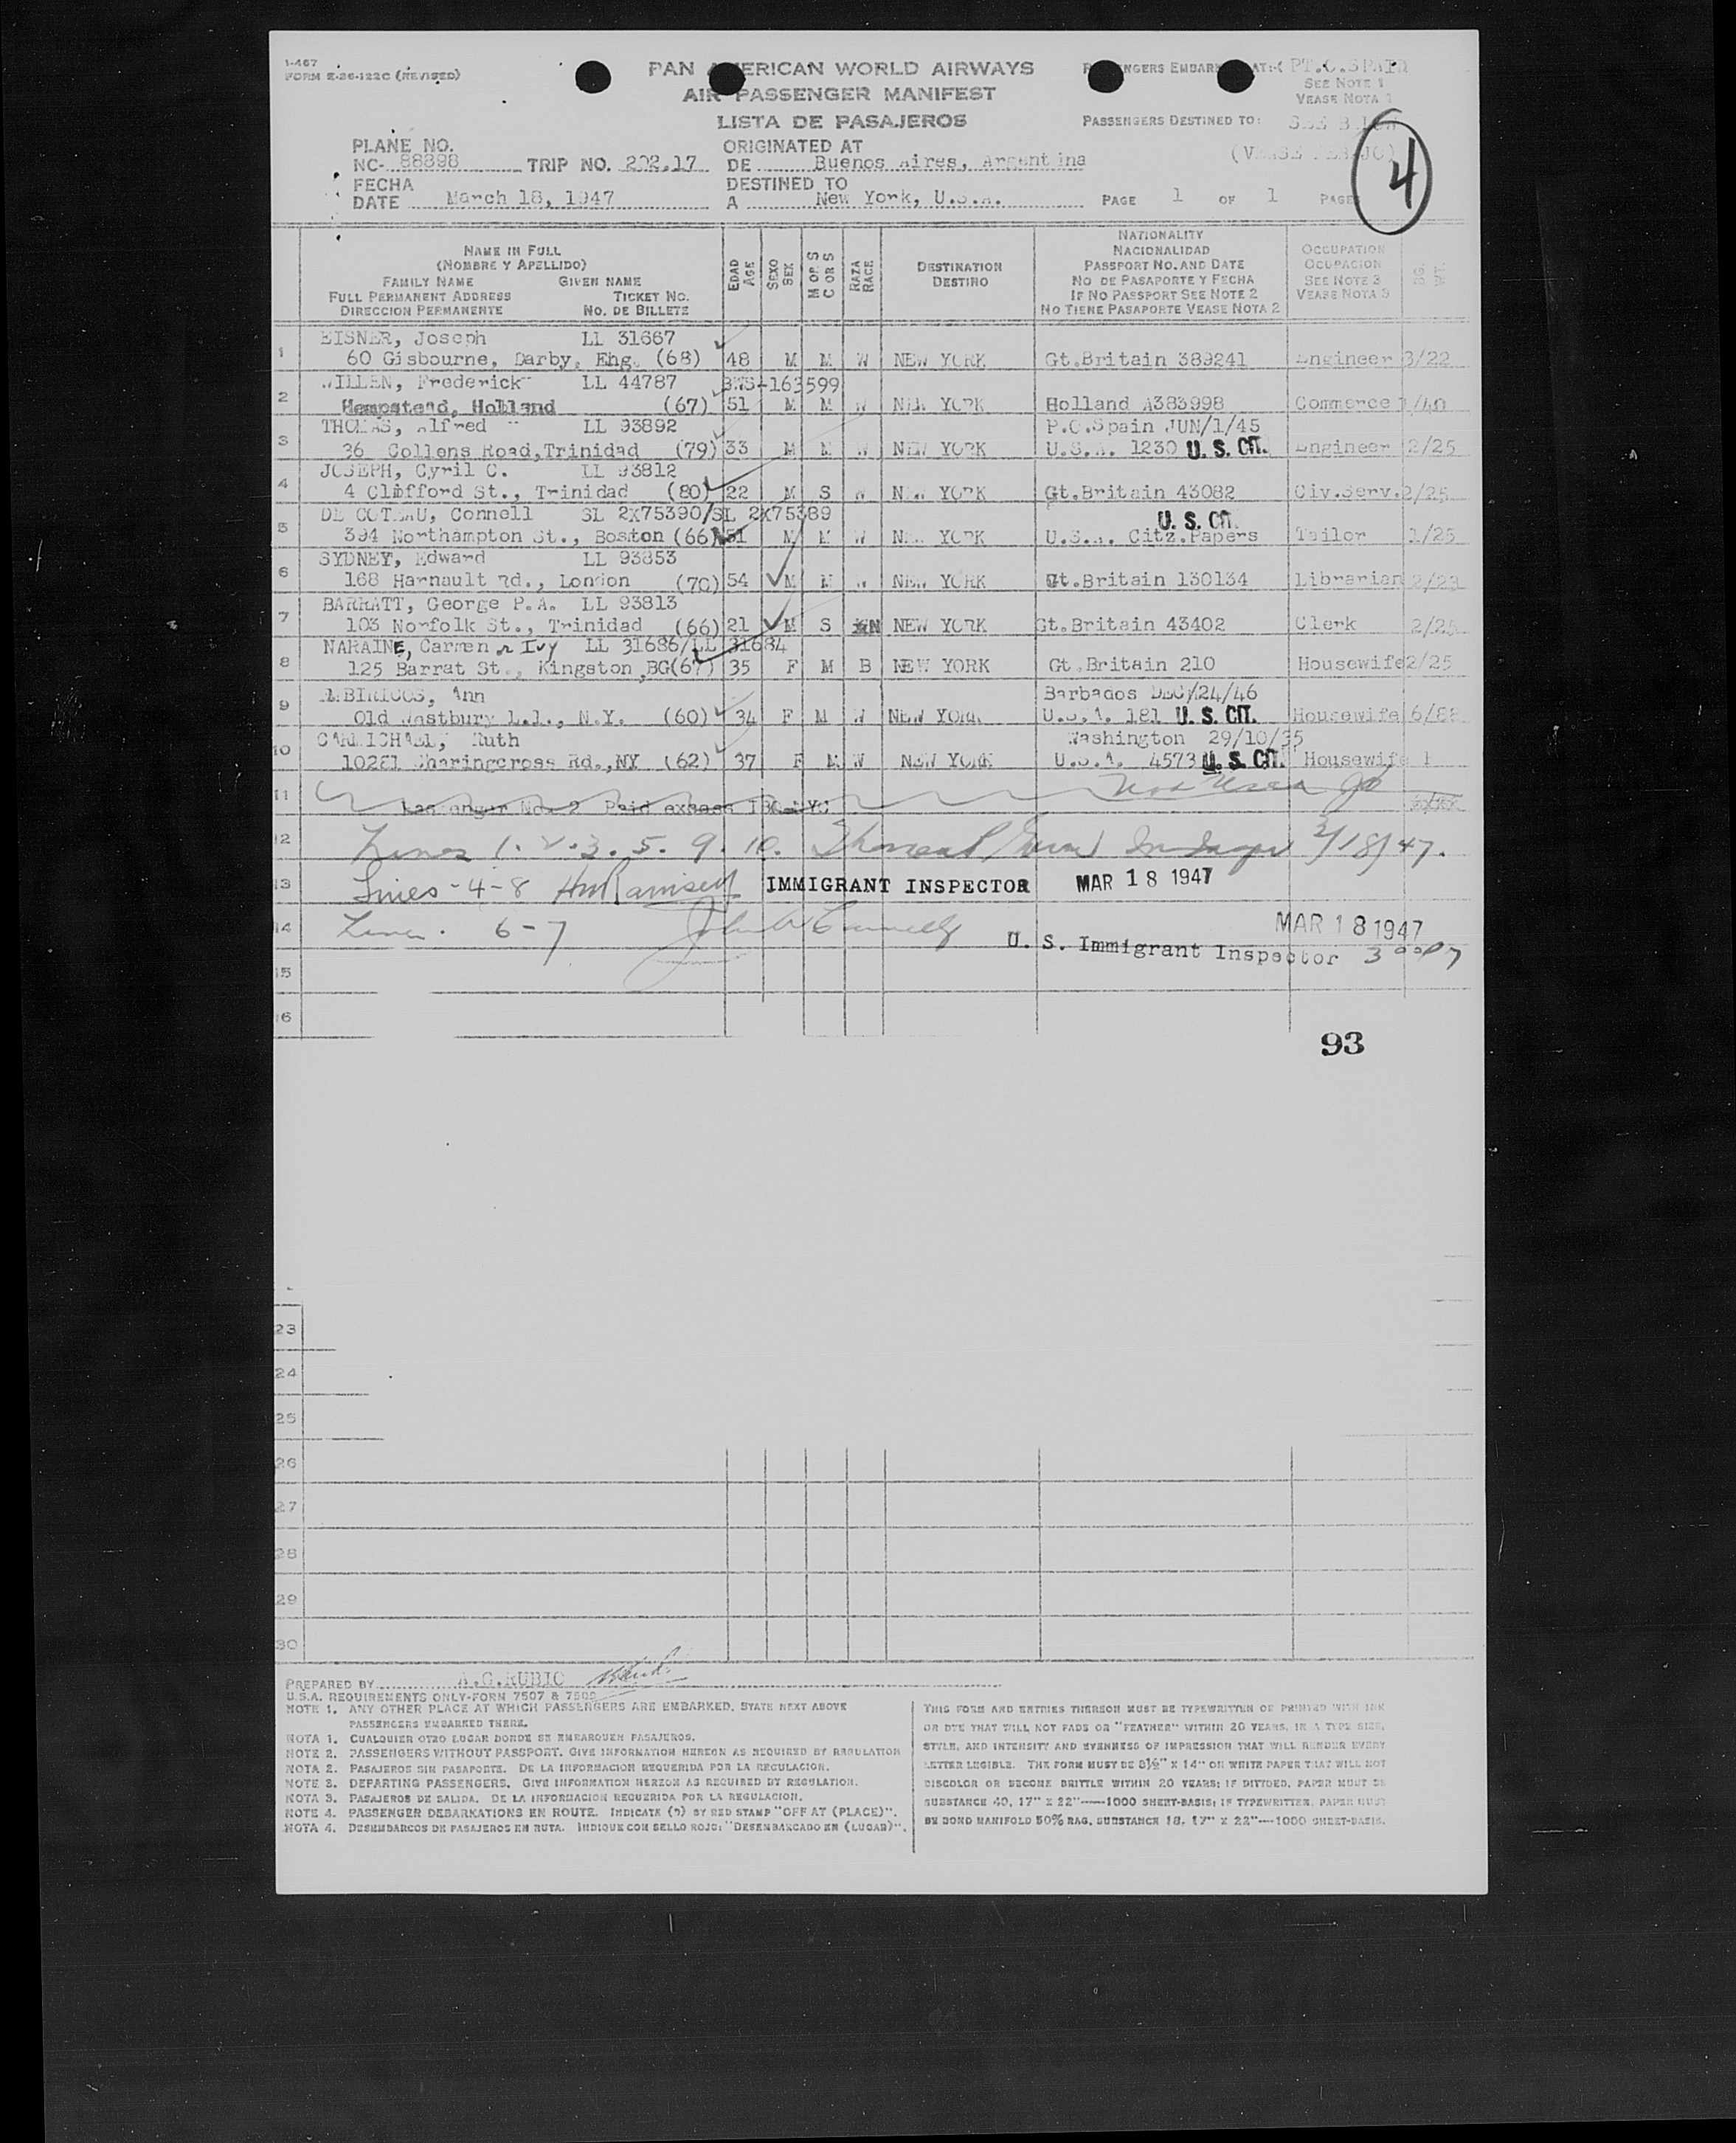 1-467
FORM E-26-122C (REVISED)
PAN AMERICAN WORLD AIRWAYS
AIR PASSENGER MANIFEST
LISTA DE PASAJEROS
PASSENGERS EMBARKED AT: PT.O.SPAIN
SEE NOTE 1
VEASE NOTA 1
PASSENGERS DESTINED TO: SEE BELOW
4
PLANE NO.
NC- 88898 TRIP NO. 202.17
ORIGINATED AT
DE Buenos Aires, Argentina
FECHA
DATE March 18, 1947
DESTINED TO
A New York, U.S.A.
PAGE 1 OF 1 PAGES
NAME IN FULL
(NOMBRE Y APELLIDO)
FAMILY NAME GIVEN NAME
FULL PERMANENT ADDRESS TICKET NO.
DIRECCION PERMANENTE NO. DE BILLETE
EDAD
AGE
SEXO
SEX
M OR S
C OR S
RAZA
RACE
DESTINATION
DESTINO
NATIONALITY
NACIONALIDAD
PASSPORT NO. AND DATE
NO DE PASAPORTE Y FECHA
IF NO PASSPORT SEE NOTE 2
NO TIENE PASAPORTE VEASE NOTA 2
OCCUPATION
OCUPACION
SEE NOTE 3
VEASE NOTA 3
EISNER, Joseph LL 31667
1 60 Gisbourne, Darby, Eng. (68) 48 M M W NEW YORK Gt.Britain 389241 Engineer 3/22
WILLEN, Frederick LL 44787 BWS-163599
2 Hempstead, Holland (67) 51 M M W NEW YORK Holland A383998 Commerce 1/40
THOMAS, Alfred LL 93892 P.O.Spain JUN/1/45
3 36 Collens Road, Trinidad (79) 33 M M W NEW YORK U.S.A. 1230 U. S. CIT. Engineer 2/25
JOSEPH, Cyril C. LL 93812
4 4 Clifford St., Trinidad (80) 22 M S W NEW YORK Gt.Britain 43082 Civ.Serv. 2/25
DE COTEAU, Connell SL 2X75390/SL 2X75389 U. S. CIT.
5 394 Northampton St., Boston (66) 51 M M W NEW YORK U.S.A. Citz.Papers Tailor 1/25
SYDNEY, Edward LL 93853
6 168 Harnault Rd., London (70) 54 M M W NEW YORK Gt.Britain 130134 Librarian 2/23
BARRATT, George P.A. LL 93813
7 103 Norfolk St., Trinidad (66) 21 M S N NEW YORK Gt.Britain 43402 Clerk 2/25
NARAINE, Carmen Ivy LL 31686/LL 31684
8 125 Barrat St., Kingston, BG(67) 35 F M B NEW YORK Gt.Britain 210 Housewife 2/25
EMBIRICOS, Ann Barbados DEC/24/46
9 Old Westbury L.I., N.Y. (60) 34 F M W NEW YORK U.S.A. 181 U. S. CIT. Housewife 6/88
CARMICHAEL, Ruth Washington 29/10/35
10 10281 Charingcross Rd., NY (62) 37 F M W NEW YORK U.S.A. 4573 U. S. CIT. Housewife 1
11 Passenger No. 2 Paid excess
12 Lines 1. 2. 3. 5. 9. 10. 3/18/47.
13 Lines - 4-8 HM Ramsey IMMIGRANT INSPECTOR MAR 18 1947
14 Lines 6-7 MAR 18 1947
U. S. Immigrant Inspector
15
16
93
23
24
25
26
27
28
29
30
PREPARED BY A.G.RUBIO
U.S.A. REQUIREMENTS ONLY-FORM 7507 & 7509
NOTE 1. ANY OTHER PLACE AT WHICH PASSENGERS ARE EMBARKED, STATE NEXT ABOVE
PASSENGERS EMBARKED THERE.
NOTA 1. CUALQUIER OTRO LUGAR DONDE SE EMBARQUEN PASAJEROS.
NOTE 2. PASSENGERS WITHOUT PASSPORT. GIVE INFORMATION HEREON AS REQUIRED BY REGULATION
NOTA 2. PASAJEROS SIN PASAPORTE. DE LA INFORMACION REQUERIDA POR LA REGULACION.
NOTE 3. DEPARTING PASSENGERS. GIVE INFORMATION HEREON AS REQUIRED BY REGULATION.
NOTA 3. PASAJEROS DE SALIDA. DE LA INFORMACION REQUERIDA POR LA REGULACION.
NOTE 4. PASSENGER DEBARKATIONS EN ROUTE. INDICATE (?) BY RED STAMP "OFF AT (PLACE)".
NOTA 4. DESEMBARCOS DE PASAJEROS EN RUTA. INDIQUE CON SELLO ROJO: "DESEMBARCADO EN (LUGAR)".
THIS FORM AND ENTRIES THEREON MUST BE TYPEWRITTEN OR PRINTED WITH INK
OR DYE THAT WILL NOT FADE OR "FEATHER" WITHIN 20 YEARS, IN A TYPE SIZE,
STYLE, AND INTENSITY AND EVENNESS OF IMPRESSION THAT WILL RENDER EVERY
LETTER LEGIBLE. THE FORM MUST BE 8½" X 14" ON WHITE PAPER THAT WILL NOT
DISCOLOR OR BECOME BRITTLE WITHIN 20 YEARS; IF DIVIDED, PAPER MUST BE
SUBSTANCE 40, 17" X 22"—1000 SHEET-BASIS; IF TYPEWRITTEN, PAPER MUST
BE BOND MANIFOLD 50% RAG, SUBSTANCE 18, 17" X 22"—1000 SHEET-BASIS.